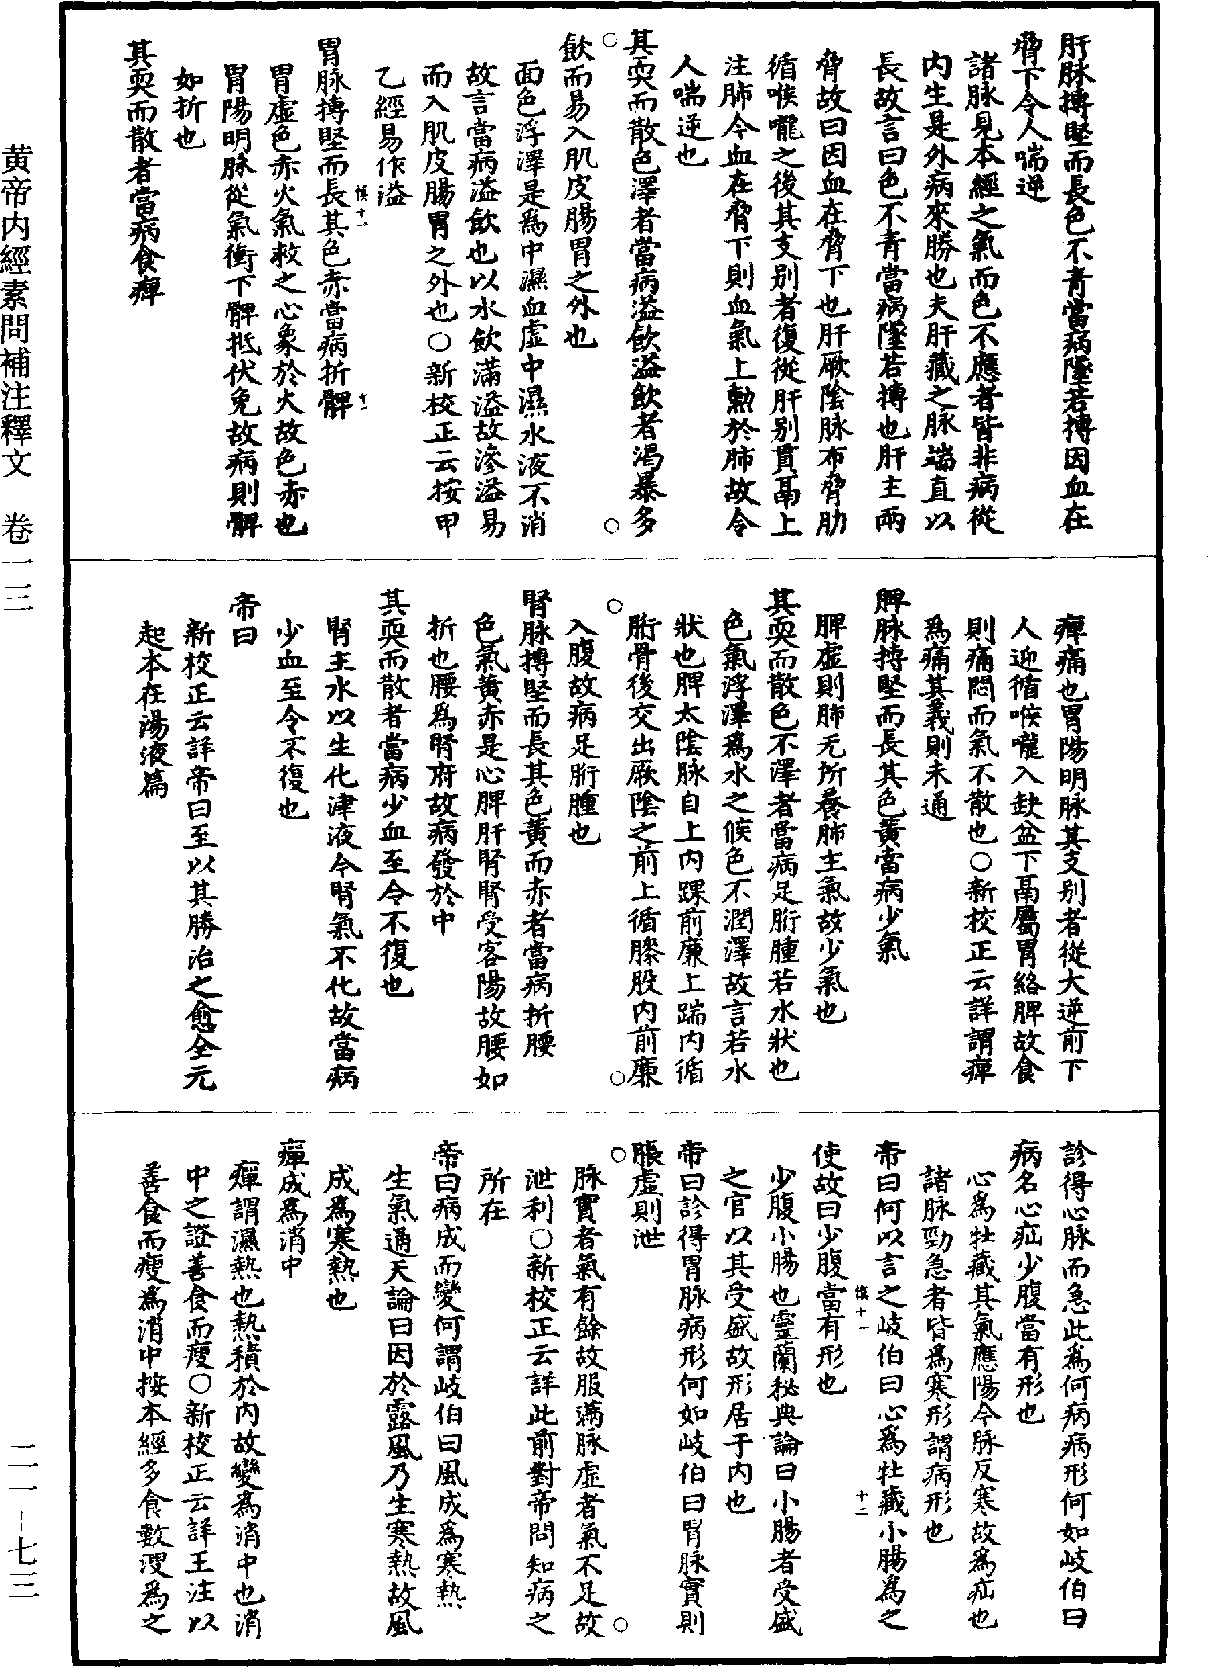 黄帝内經素問補注釋文　卷一三
二一－七三
肝脉搏堅而長色不青當病墜若搏因血在
脅下令人喘逆
諸脉見本經之氣而色不應者皆非病從
内生是外病來勝也夫肝藏之脉端直以
長故言曰色不青當病墜若搏也肝主兩
脅故曰因血在脅下也肝厥陰脉布脅肋
循喉嚨之後其支别者復從肝别貫鬲上
注肺今血在脅下則血氣上熏於肺故令
人喘逆也
其耎而散色澤者當病溢飲溢飲者渴暴多
飲而易入肌皮腸胃之外也
面色浮澤是爲中濕血虛中濕水液不消
故言當病溢飲也以水飲滿溢故滲溢易
而入肌皮腸胃之外也○新校正云按甲
乙經易作溢
胃脉搏堅而長其色赤當病折髀
胃虛色赤火氣救之心象於火故色赤也
胃陽明脉從氣衝下髀抵伏兔故病則髀
如折也
其耎而散者當病食痺
痺痛也胃陽明脉其支别者從大迎前下
人迎循喉嚨入缺盆下鬲屬胃絡脾故食
則痛悶而氣不散也○新校正云詳謂痺
爲痛其義則未通
脾脉搏堅而長其色黄當病少氣
脾虛則肺无所養肺主氣故少氣也
其耎而散色不澤者當病足胻腫若水狀也
色氣浮澤爲水之候色不潤澤故言若水
狀也脾太陰脉自上内踝前廉上踹内循
胻骨後交出厥陰之前上循膝股内前廉
入腹故病足胻腫也
腎脉搏堅而長其色黄而赤者當病折腰
色氣黄赤是心脾肝腎腎受客陽故腰如
折也腰爲腎府故病發於中
其耎而散者當病少血至令不復也
腎主水以生化津液今腎氣不化故當病
少血至令不復也
帝曰
新校正云詳帝曰至以其勝治之愈全元
起本在湯液篇
診得心脉而急此爲何病病形何如岐伯曰
病名心疝少腹當有形也
心爲牡藏其氣應陽今脉反寒故爲疝也
諸脉勁急者皆爲寒形謂病形也
帝曰何以言之岐伯曰心爲牡藏小腸爲之
使故曰少腹當有形也
少腹小腸也靈蘭秘典論曰小腸者受盛
之官以其受盛故形居于内也
帝曰診得胃脉病形何如岐伯曰胃脉實則
脹虛則泄
脉實者氣有餘故服滿脉虛者氣不足故
泄利○新校正云詳此前對帝問知病之
所在
帝曰病成而變何謂岐伯曰風成爲寒熱
生氣通天論曰因於露風乃生寒熱故風
成爲寒熱也
癉成爲消中
癉謂濕熱也熱積於内故變爲消中也消
中之證善食而瘦○新校正云詳王注以
善食而瘦爲消中按本經多食數溲爲之